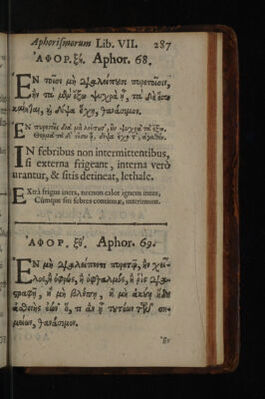 Aphorismorum Lib. VII. 287
ΑΦΟΡ. ξή. Aphor. 68.
ΕΝ τοῖσι μὴ διαλείπουσι πυρετοῖσιν,
ἢν τὰ μὲν ἔξω ψυχρὰ ᾖ, τὰ δὲ
καίηται, καὶ δίψα ἔχῃ, θανάσιμον.
IN febribus non intermittentibus,
si externa frigeant, interna verò
urantur, & sitis detineat, lethale.
EXtrà frigus iners, necnon calor ignem intra,
Cùmque siti febres continuæ, interimunt.
ΑΦΟΡ. ξθ'. Aphor. 69.
ΕΝ μὴ διαλείποντι πυρετῷ, ἢν χεῖ-
λος, ἢ ὀφρὺς, ἢ ὀφθαλμὸς, ἢ ῥὶς δια-
στραφῇ, ἢ μὴ βλέπῃ, ἢ μὴ ἀκούῃ ἤδη
ἀσθενὴς ἐὼν ὅ, τι ἂν ᾖ τουτέων τῶν ση-
μείων, θανάσιμον.